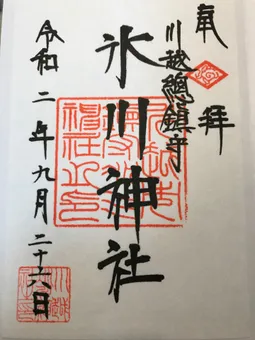 奉拝
川越總鎮守
氷川神社
令和二年九月二十六日